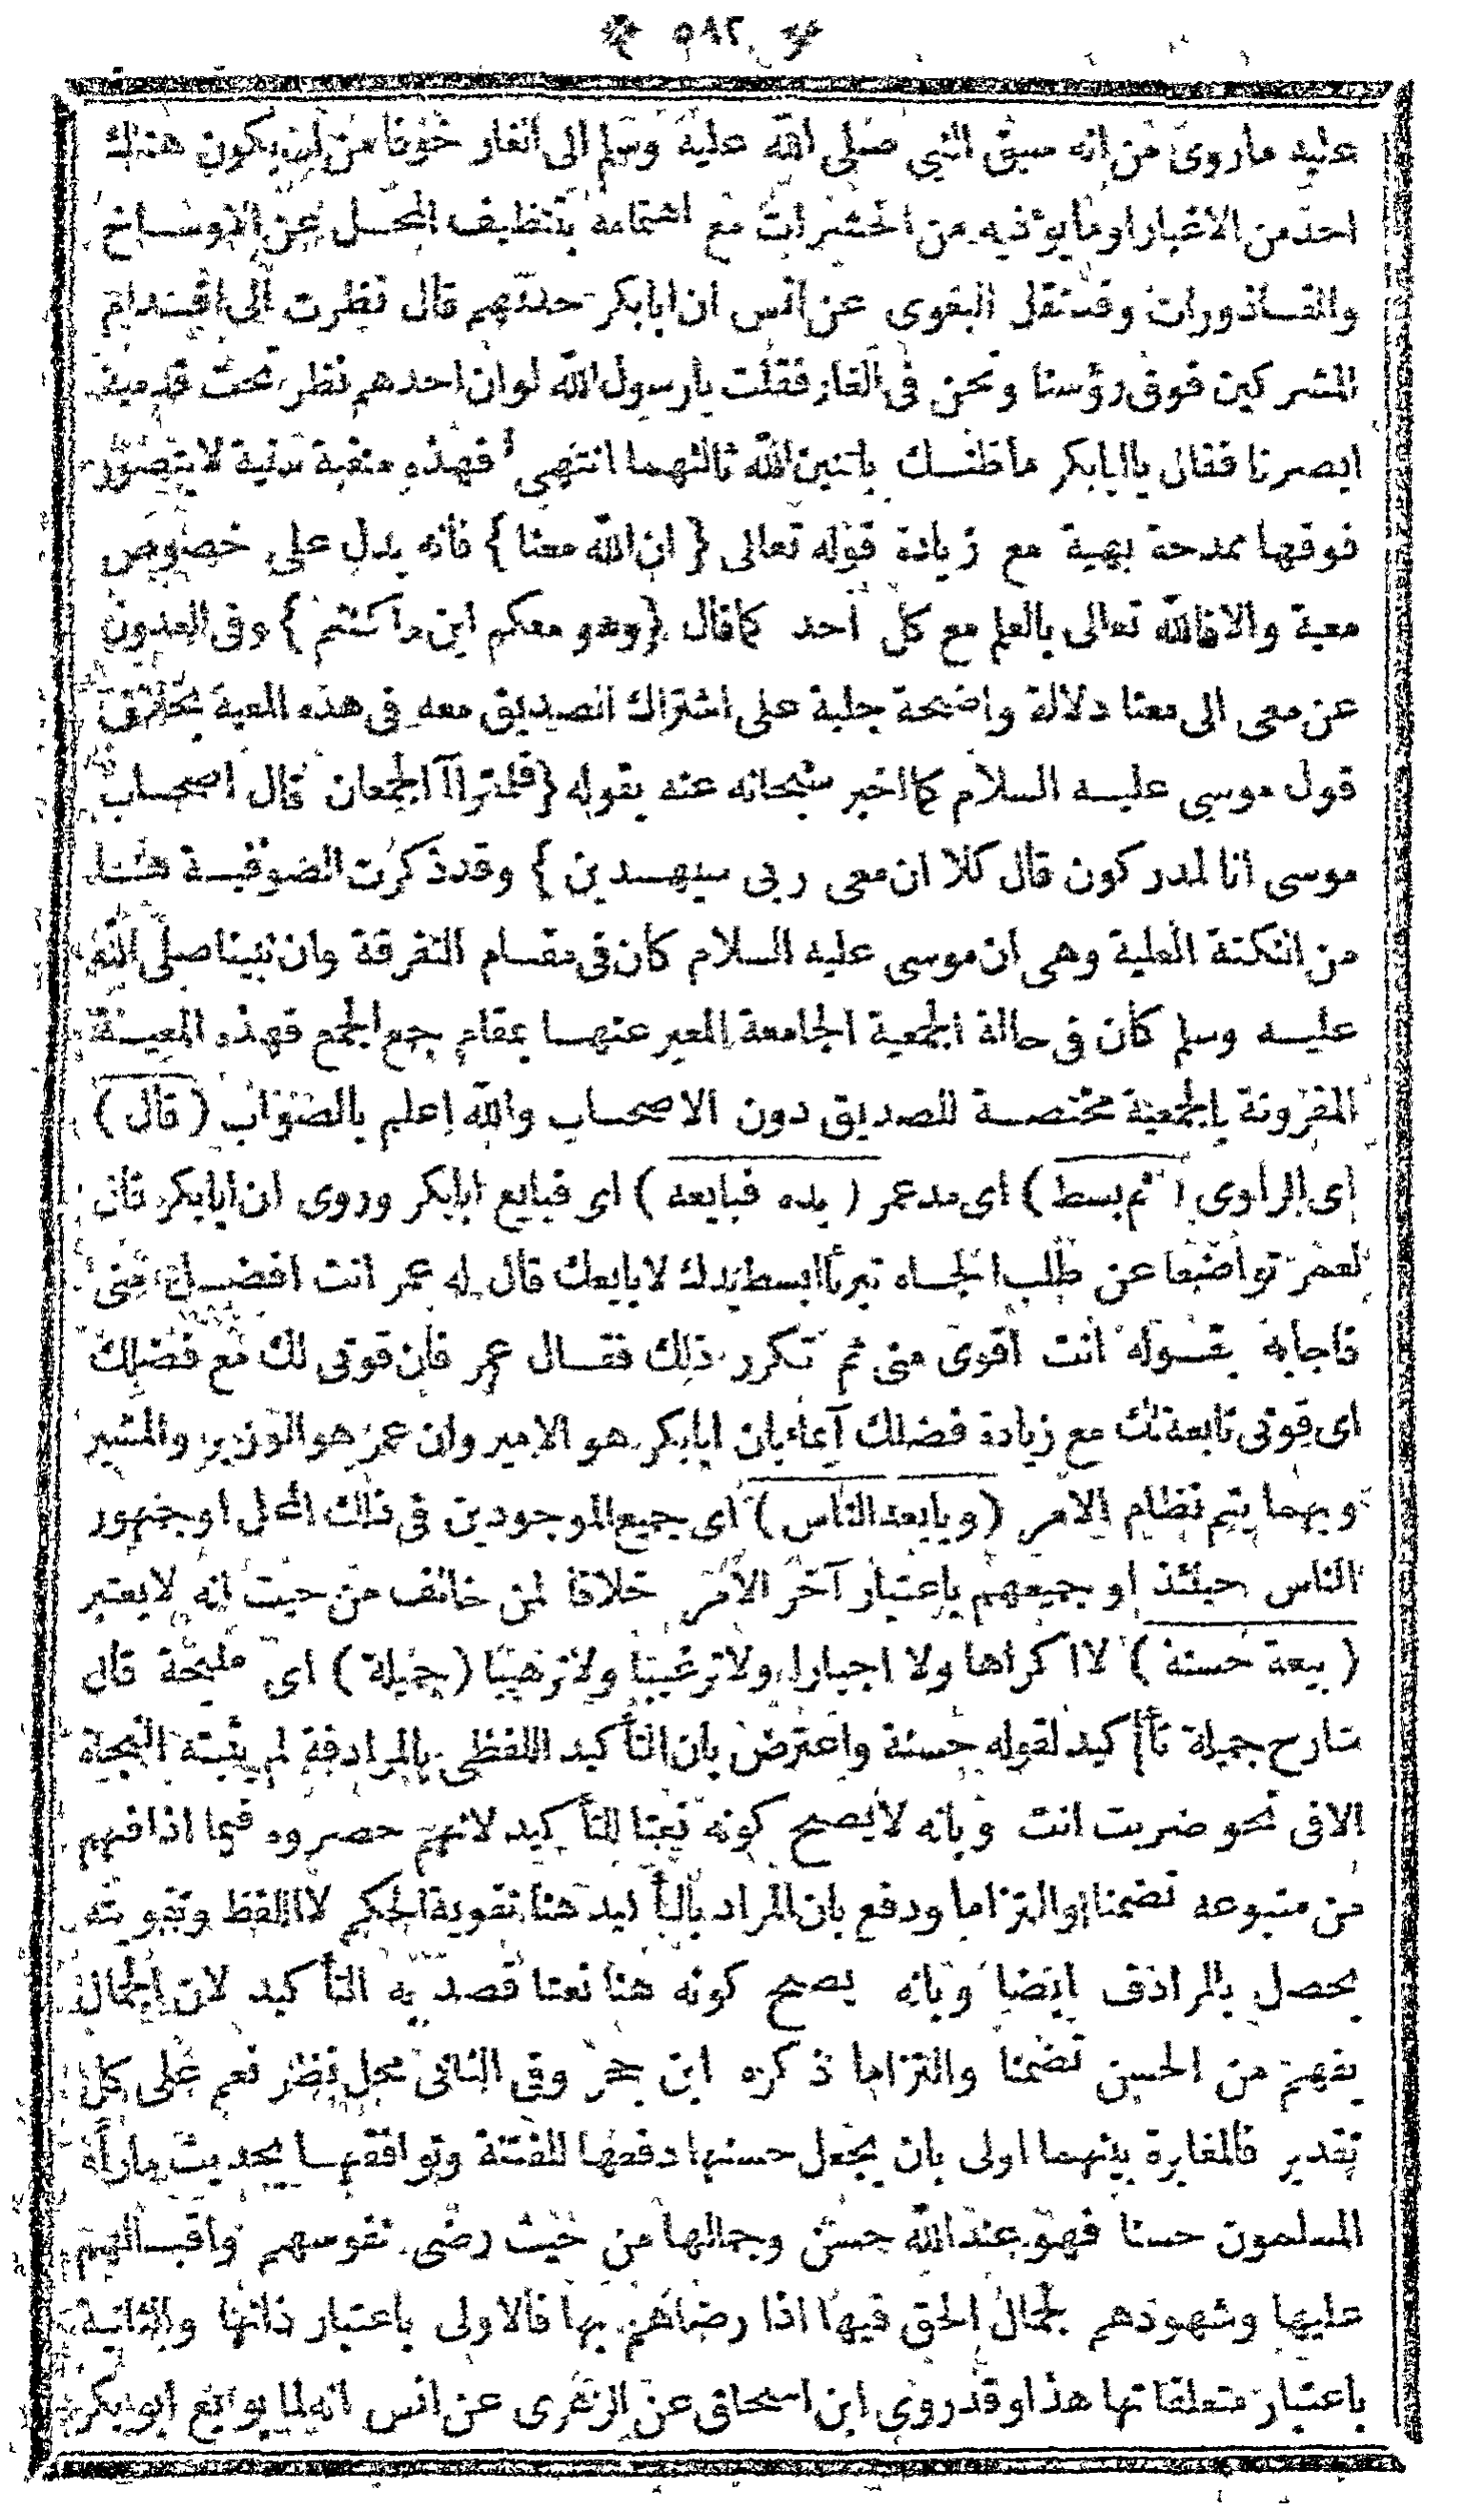 * ٥٨٢ *
عليه ما روى من انه سبق النبي صلى الله عليه وسلم الى الغار خوفا من ان يكون هناك
احد من الاغيار او ما يؤذيه من الحشرات مع اهتمامه بتنظيف المحل عن الاوساخ
والقاذورات وقد نقل البغوى عن انس ان ابابكر حدثهم قال نظرت الى اقدام
المشركين فوق رؤسنا ونحن فى الغار فقلت يارسول الله لو ان احدهم نظر تحت قدميه
ابصرنا فقال ياابابكر ما ظنك باثنين الله ثالثهما انتهى فهذه منقبة سنية لا يتصور
فوقها مدحة بهية مع زيادة قوله تعالى { ان الله معنا } فانه يدل على خصوص
معية والا فالله تعالى بالعلم مع كل احد كما قال { وهو معكم اين ما كنتم } وفى العدول
عن معى الى معنا دلالة واضحة جلية على اشتراك الصديق معه فى هذه المعية بخلاف
قول موسى عليه السلام كما اخبر سبحانه عنه بقوله { فلما تراآ الجمعان قال اصحاب
موسى انا لمدركون قال كلا ان معى ربى سيهدين } وقد ذكرت الصوفية هنا
من النكتة العلية وهى ان موسى عليه السلام كان فى مقام التفرقة وان نبينا صلى الله
عليه وسلم كان فى حالة الجمعية الجامعة المعبر عنها بمقام جمع الجمع فهذه المعية
المقرونة بالجمعية مختصة للصديق دون الاصحاب والله اعلم بالصواب ( قال )
اى الراوى ( ثم بسط ) اى مد عمر ( يده فبايعه ) اى فبايع ابابكر وروى ان ابابكر قال
لعمر تواضعا عن طلب الجاه تبرئا ابسط يدك لابايعك قال له عمر انت افضل منى
فاجابه بقوله انت اقوى منى ثم تكرر ذلك فقال عمر فان قوتى لك مع فضلك
اى قوتى تابعة لك مع زيادة فضلك ايماء بان ابابكر هو الامير وان عمر هو الوزير والمشير
وبهما يتم نظام الامر ( وبايعه الناس ) اى جميع الموجودين فى ذلك المحل او جمهور
الناس حينئذ او جميعهم باعتبار آخر الامر خلافا لمن خالف من حيث انه لا يعتبر
( بيعة حسنة ) لا اكراها ولا اجبارا ولا ترغيبا ولا ترهيبا ( جميلة ) اى مليحة قال
شارح جميلة تأكيد لقوله حسنة واعترض بان التأكيد اللفظى بالمرادفة لم يثبته النحاة
الا فى نحو ضربت انت وبانه لا يصح كونه نعتا للتأكيد لانهم حصروه فيما اذا فهم
من متبوعه تضمنا او التزاما ودفع بان المراد بالتأكيد هنا تقوية الحكم لا اللفظ وتقويته
يحصل بالمرادف ايضا وبانه يصح كونه هنا نعتا قصد به التأكيد لان الجمال
يفهم من الحسن تضمنا والتزاما ذكره ابن حجر وفى الثانى محل نظر نعم على كل
تقدير فالمغايرة بينهما اولى بان يجعل حسنها دفعها للفتنة وتوافقها بحديث مارآه
المسلمون حسنا فهو عند الله حسن وجمالها من حيث رضى نفوسهم واقبالهم
عليها وشهودهم لجمال الحق فيها اذا رضاهم بها فالاولى باعتبار ذاتها والثانية
باعتبار متعلقاتها هذا وقد روى ابن اسحاق عن الزهرى عن انس انه لما بويع ابوبكر